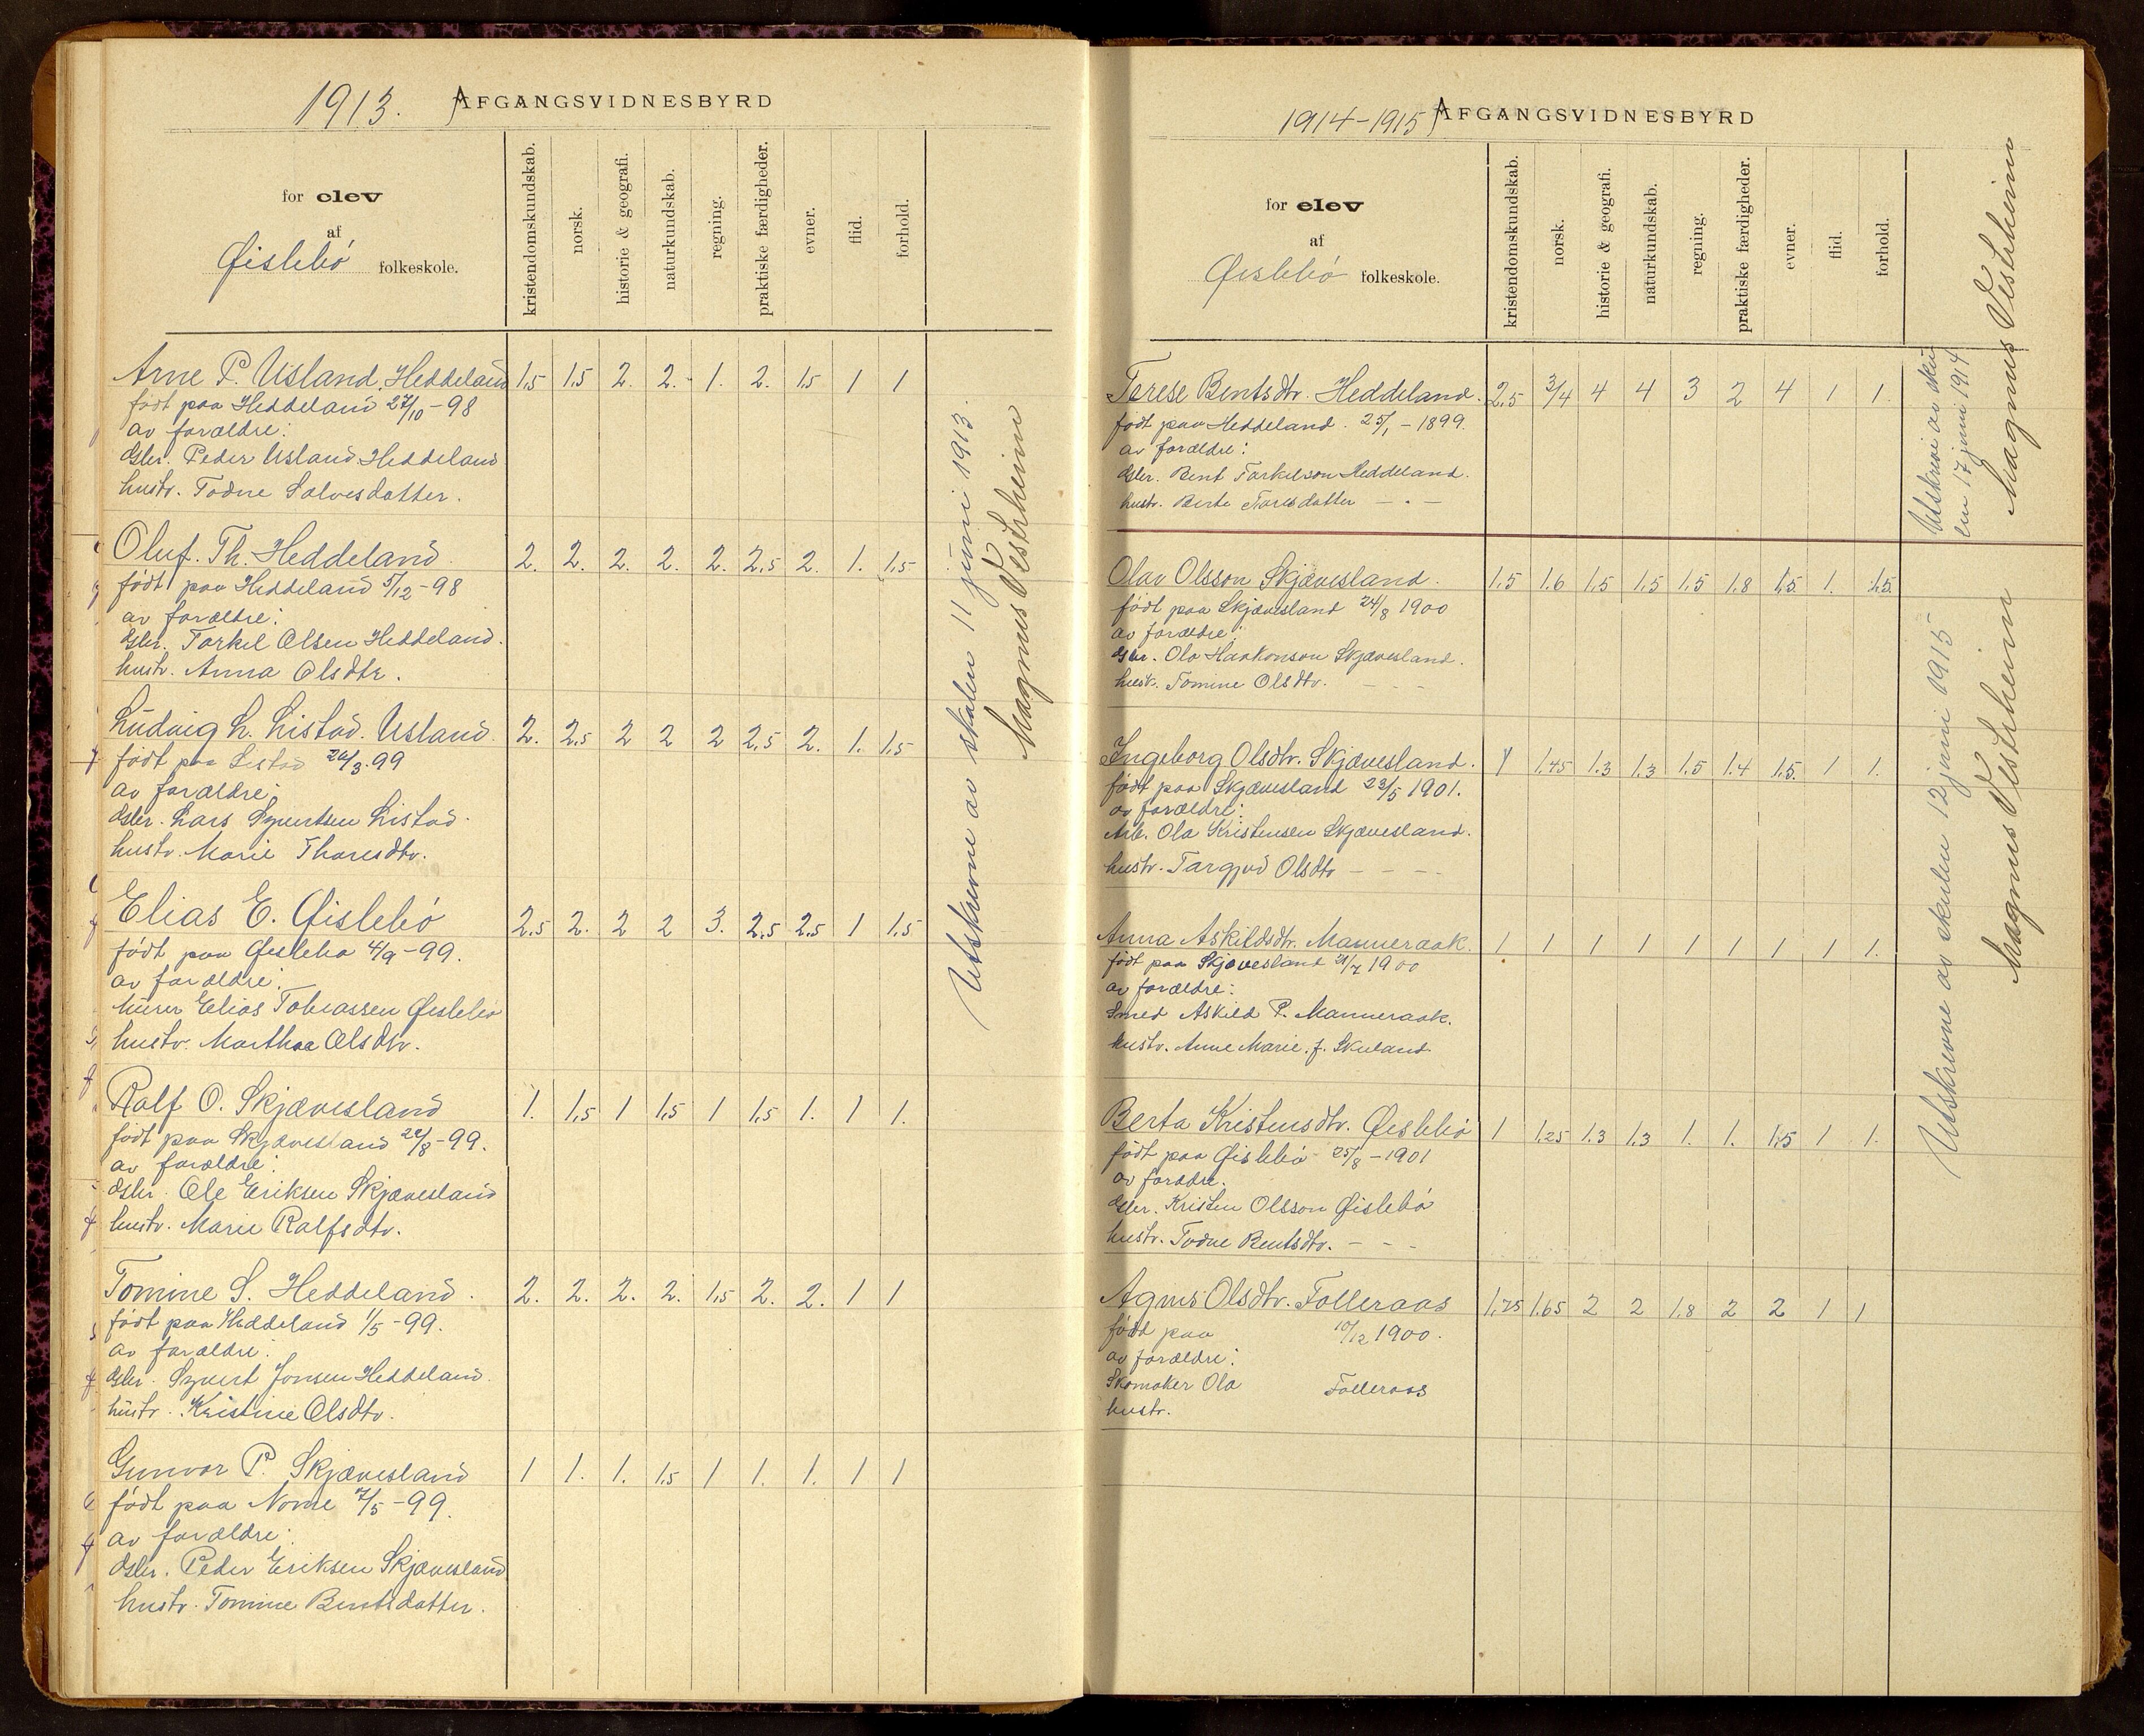 1913. AFGANGSVIDNESBYRD
for elev
af
Øislebö folkeskole.
kristendomskundskab.
norsk.
historie & geografi.
naturkundskab.
regning.
praktiske færdigheder.
evner.
flid.
forhold.
Arne P. Usland, Heddeland 1,5 1,5 2. 2. 1. 2. 1,5 1 1
födt paa Heddeland 27/10 - 98
av forældre:
Gbr. Peder Usland Heddeland
hustr. Todne Salvesdatter.
Oluf. Th. Heddeland 2. 2. 2. 2. 2. 2,5 2. 1. 1,5
födt paa Heddeland 5/12 - 98
av forældre:
Gbr. Torkel Olsen Heddeland.
hustr. Anna Olsdtr.
Ludvig L. Listad. Usland. 2. 2,5 2 2 2 2,5 2. 1. 1,5
födt paa Listad 26/3.99
av forældre:
Gbr. Lars Syvertsen Listad.
hustr. Marie Tharesdtr.
Elias E. Øislebö 2,5 2. 2 2 3. 2,5 2,5 1 1,5
födt paa Øislebö 4/9 - 99.
av forældre:
Murer Elias Tobiassen Øislebö
hustr. Marthea Olsdtr.
Ralf O. Skjævesland 1. 1,5 1 1,5 1 1,5 1. 1 1.
födt paa Skjævesland 22/8 - 99.
av forældre:
Gbr. Ole Eriksen Skjævesland
hustr. Marie Ralfsdtr.
Tomine S. Heddeland. 2. 2. 2. 2. 1,5 2. 2. 1 1
födt paa Heddeland 1/5 - 99.
av forældre:
Gbr. Syvert Jonsen Heddeland.
hustr. Kristine Olsdtr.
Gunvor P. Skjævesland 1 1. 1. 1,5 1 1. 1. 1 1
födt paa Nome 7/5 - 99.
av forældre:
Gbr. Peder Eriksen Skjævesland
hustr. Tomine Bentsdatter.
Utskrevne av skolen 11 juni 1913.
Magnus Vestrheim
1914-1915 AFGANGSVIDNESBYRD
for elev
af
Øislebö folkeskole.
kristendomskundskab.
norsk.
historie & geografi.
naturkundskab.
regning.
praktiske færdigheder.
evner.
flid.
forhold.
Terese Bentsdtr. Heddeland. 2,5 3/4 4 4 3 2 4 1 1.
födt paa Heddeland. 25/1 - 1899.
av forældre:
Gbr. Bent Torkelson Heddeland.
hustr. Berte Taresdatter — . —
Utskrevi av sku
len 17 juni 1914
Magnus Vestrheim
Olav Olsson Skjævesland. 1,5 1,6 1,5 1,5 1,5 1,8 1,5. 1. 1,5.
födt paa Skjævesland 24/8 1900
av forældre:
Gbr. Ola Haakonson Skjævesland.
hustr. Tomine Olsdtr. - - -
Ingeborg Olsdtr. Skjævesland. 1 1.45 1.3 1.3 1.5 1.4 1.5. 1 1.
födt paa Skjævesland 23/5 1901.
av forældre:
Arb. Ola Kristensen Skjævesland.
hustr. Targjerd Olsdtr - - - -
Anna Askildsdtr. Manneraak. 1 1 1 1 1 1 1 1 1.
födt paa Skjævesland 21/7 1900
av forældre:
Smed Askild P. Manneraak.
hustr. Anne Marie. f. Skuland.
Berta Kristensdtr. Øislebö 1 1.25 1.3 1.3 1. 1. 1.5 1 1.
födt paa Øislebö 25/8 - 1901
av forddre.
Gbr. Kristen Olsson Øislebö
hustr. Todne Bentsdtr. - - -
Agnes Olsdtr. Folleraas 1,75 1.65 2 2 1.8 2 2 1 1
född paa 10/12 1900.
av forældre:
Skomaker Ola Folleraas
hustr.
Utskrevne av skulen 12 juni 1915
Magnus Vestrheim